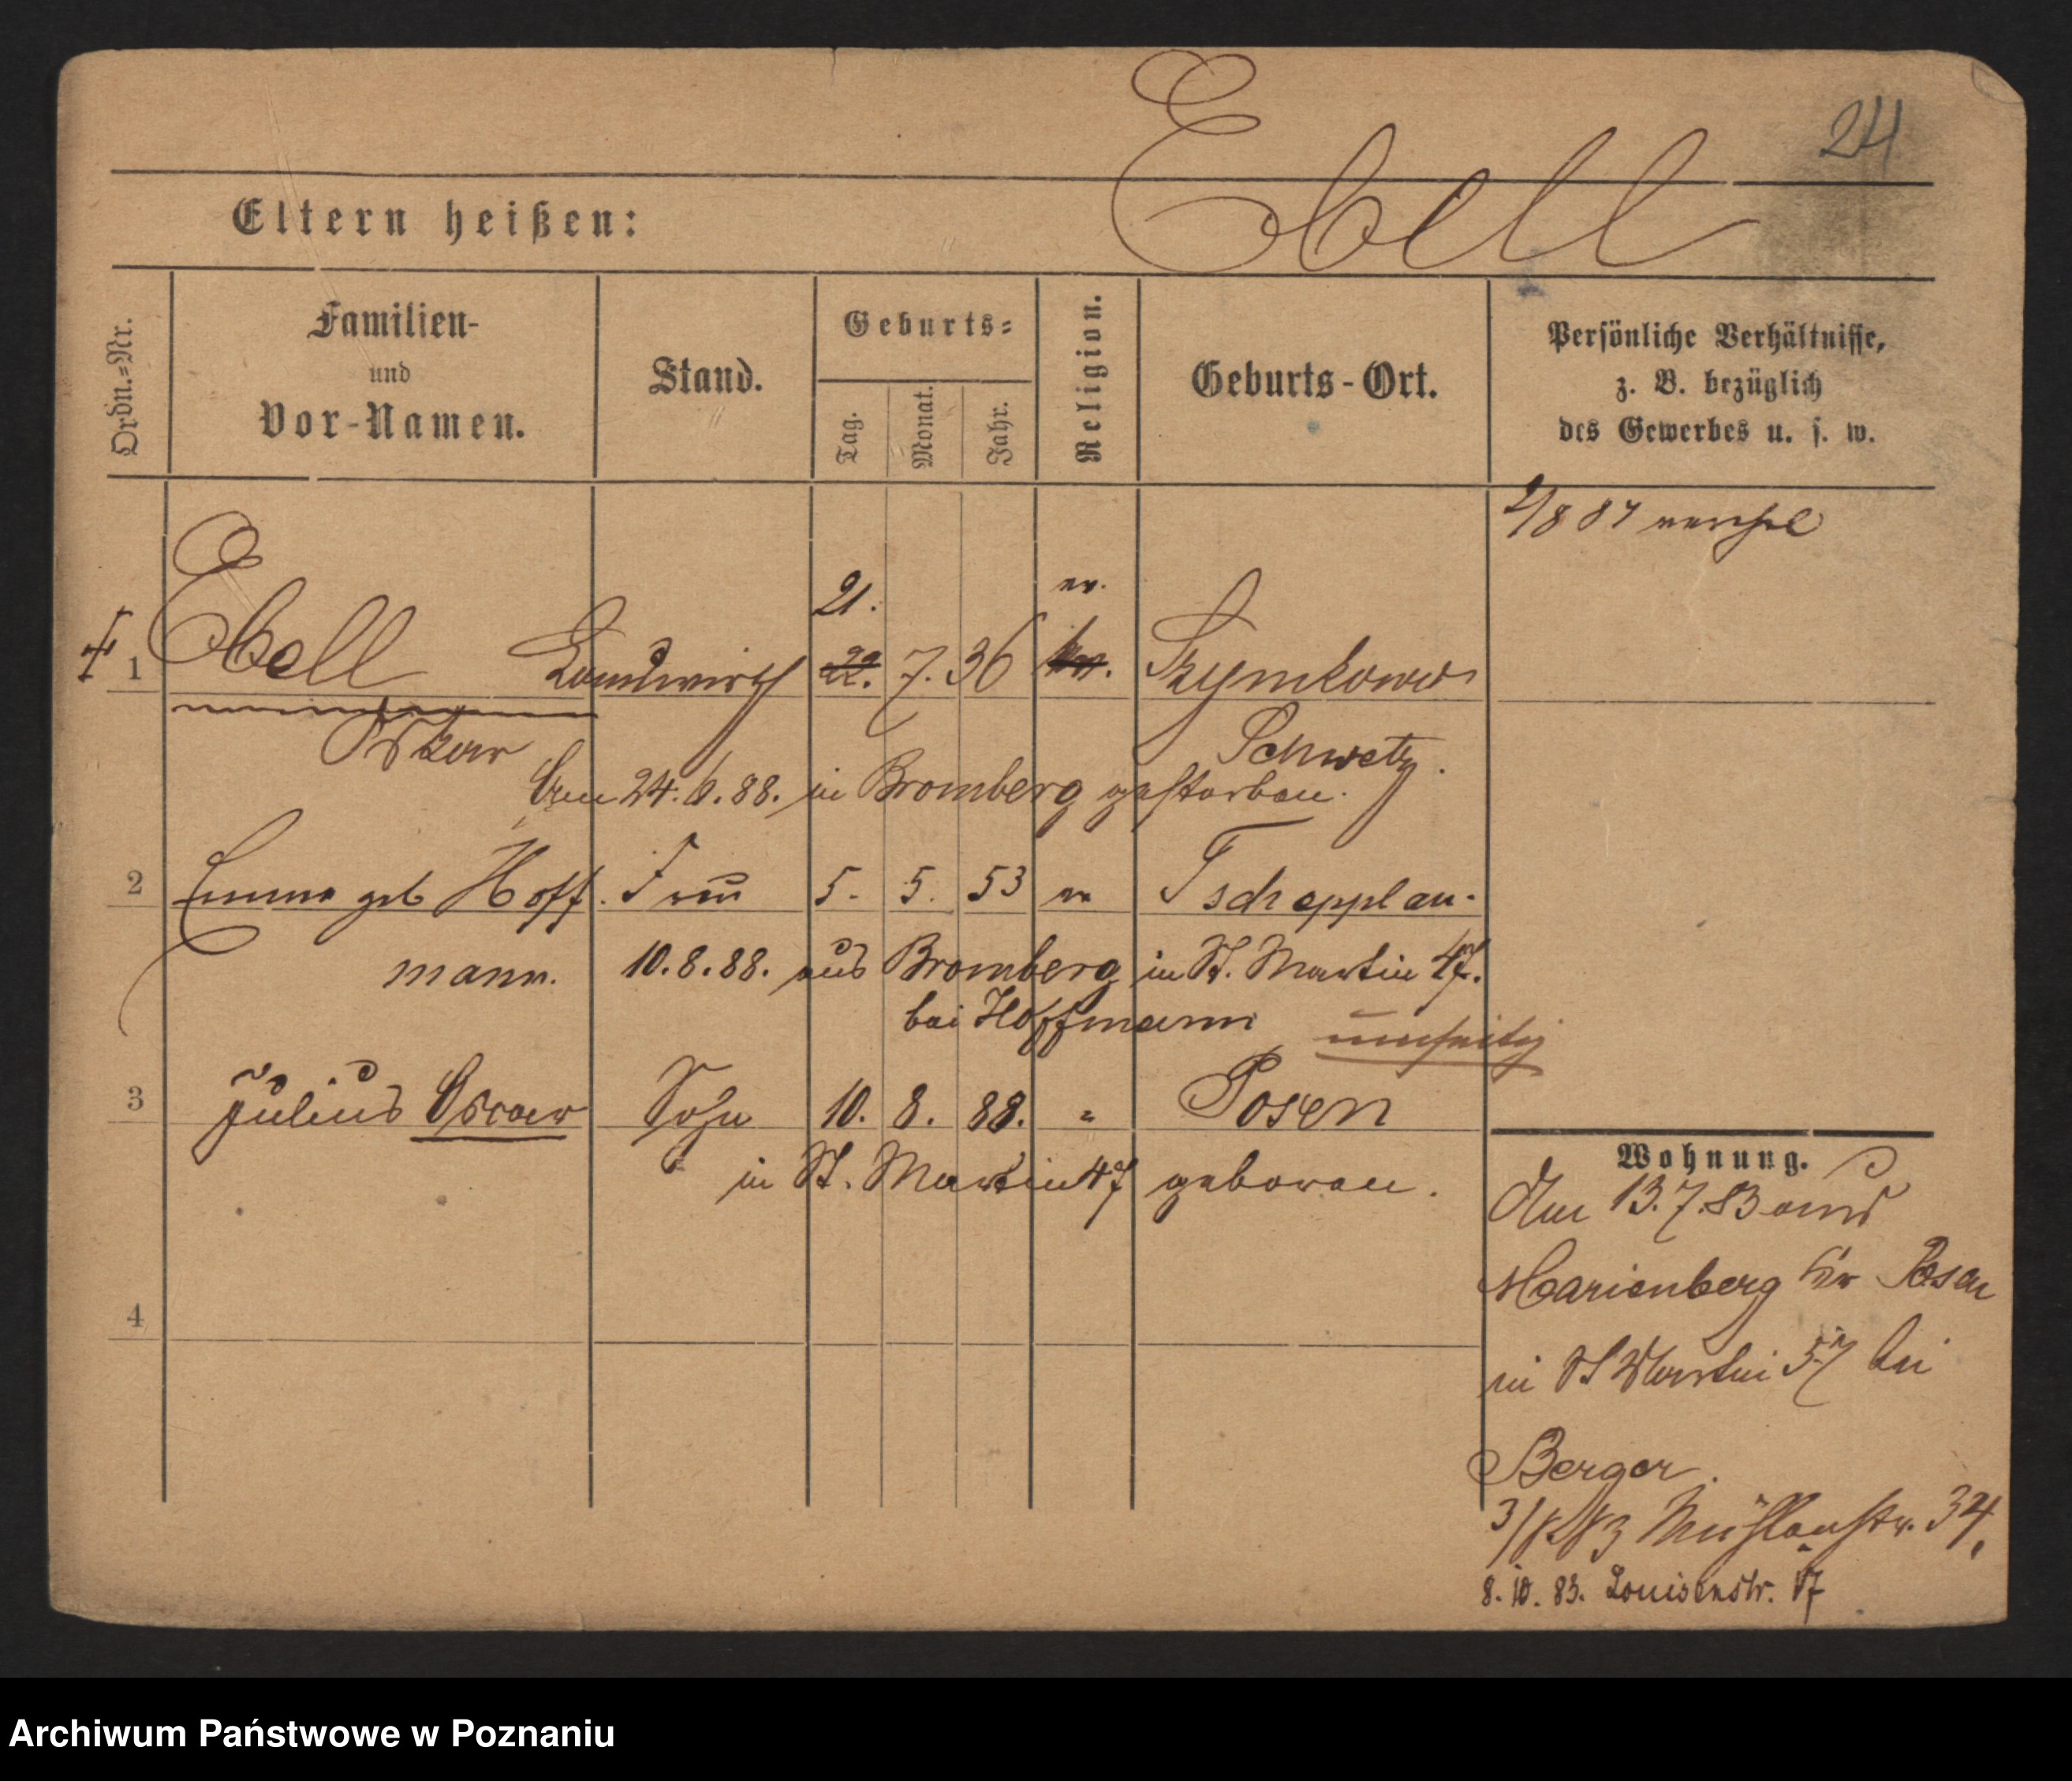 24
Ebell
Eltern heißen:
Ordn.=Nr.
Familien-
und
Vor-Namen.
Stand.
Geburts=
Tag.
Monat.
Jahr.
Religion.
Geburts-Ort.
Persönliche Verhältnisse,
z. B. bezüglich
des Gewerbes u. s. w.
2/8 87
21. ev.
1 Ebell Landwirth 22. 7. 36 Szymkowo
Oskar Schwetz.
Am 24. 6. 88. in Bromberg gestorben.
2 Emma geb Hoff- Frau 5. 5. 53 ev Tschepplau.
mann. 10.8.88. aus Bromberg in St. Martin 47.
bei Hoffmann umseitig
3 Julius Oscar Sohn 10. 8. 88. " Posen
in St. Martin 47 geboren.
4
Wohnung.
Am 13.7.83 aus
Marienberg Kr Posen
in St Martin 57 bei
Berger.
Mühlenstr. 34,
8. 10. 83. Louisenstr. 17
Archiwum Państwowe w Poznaniu